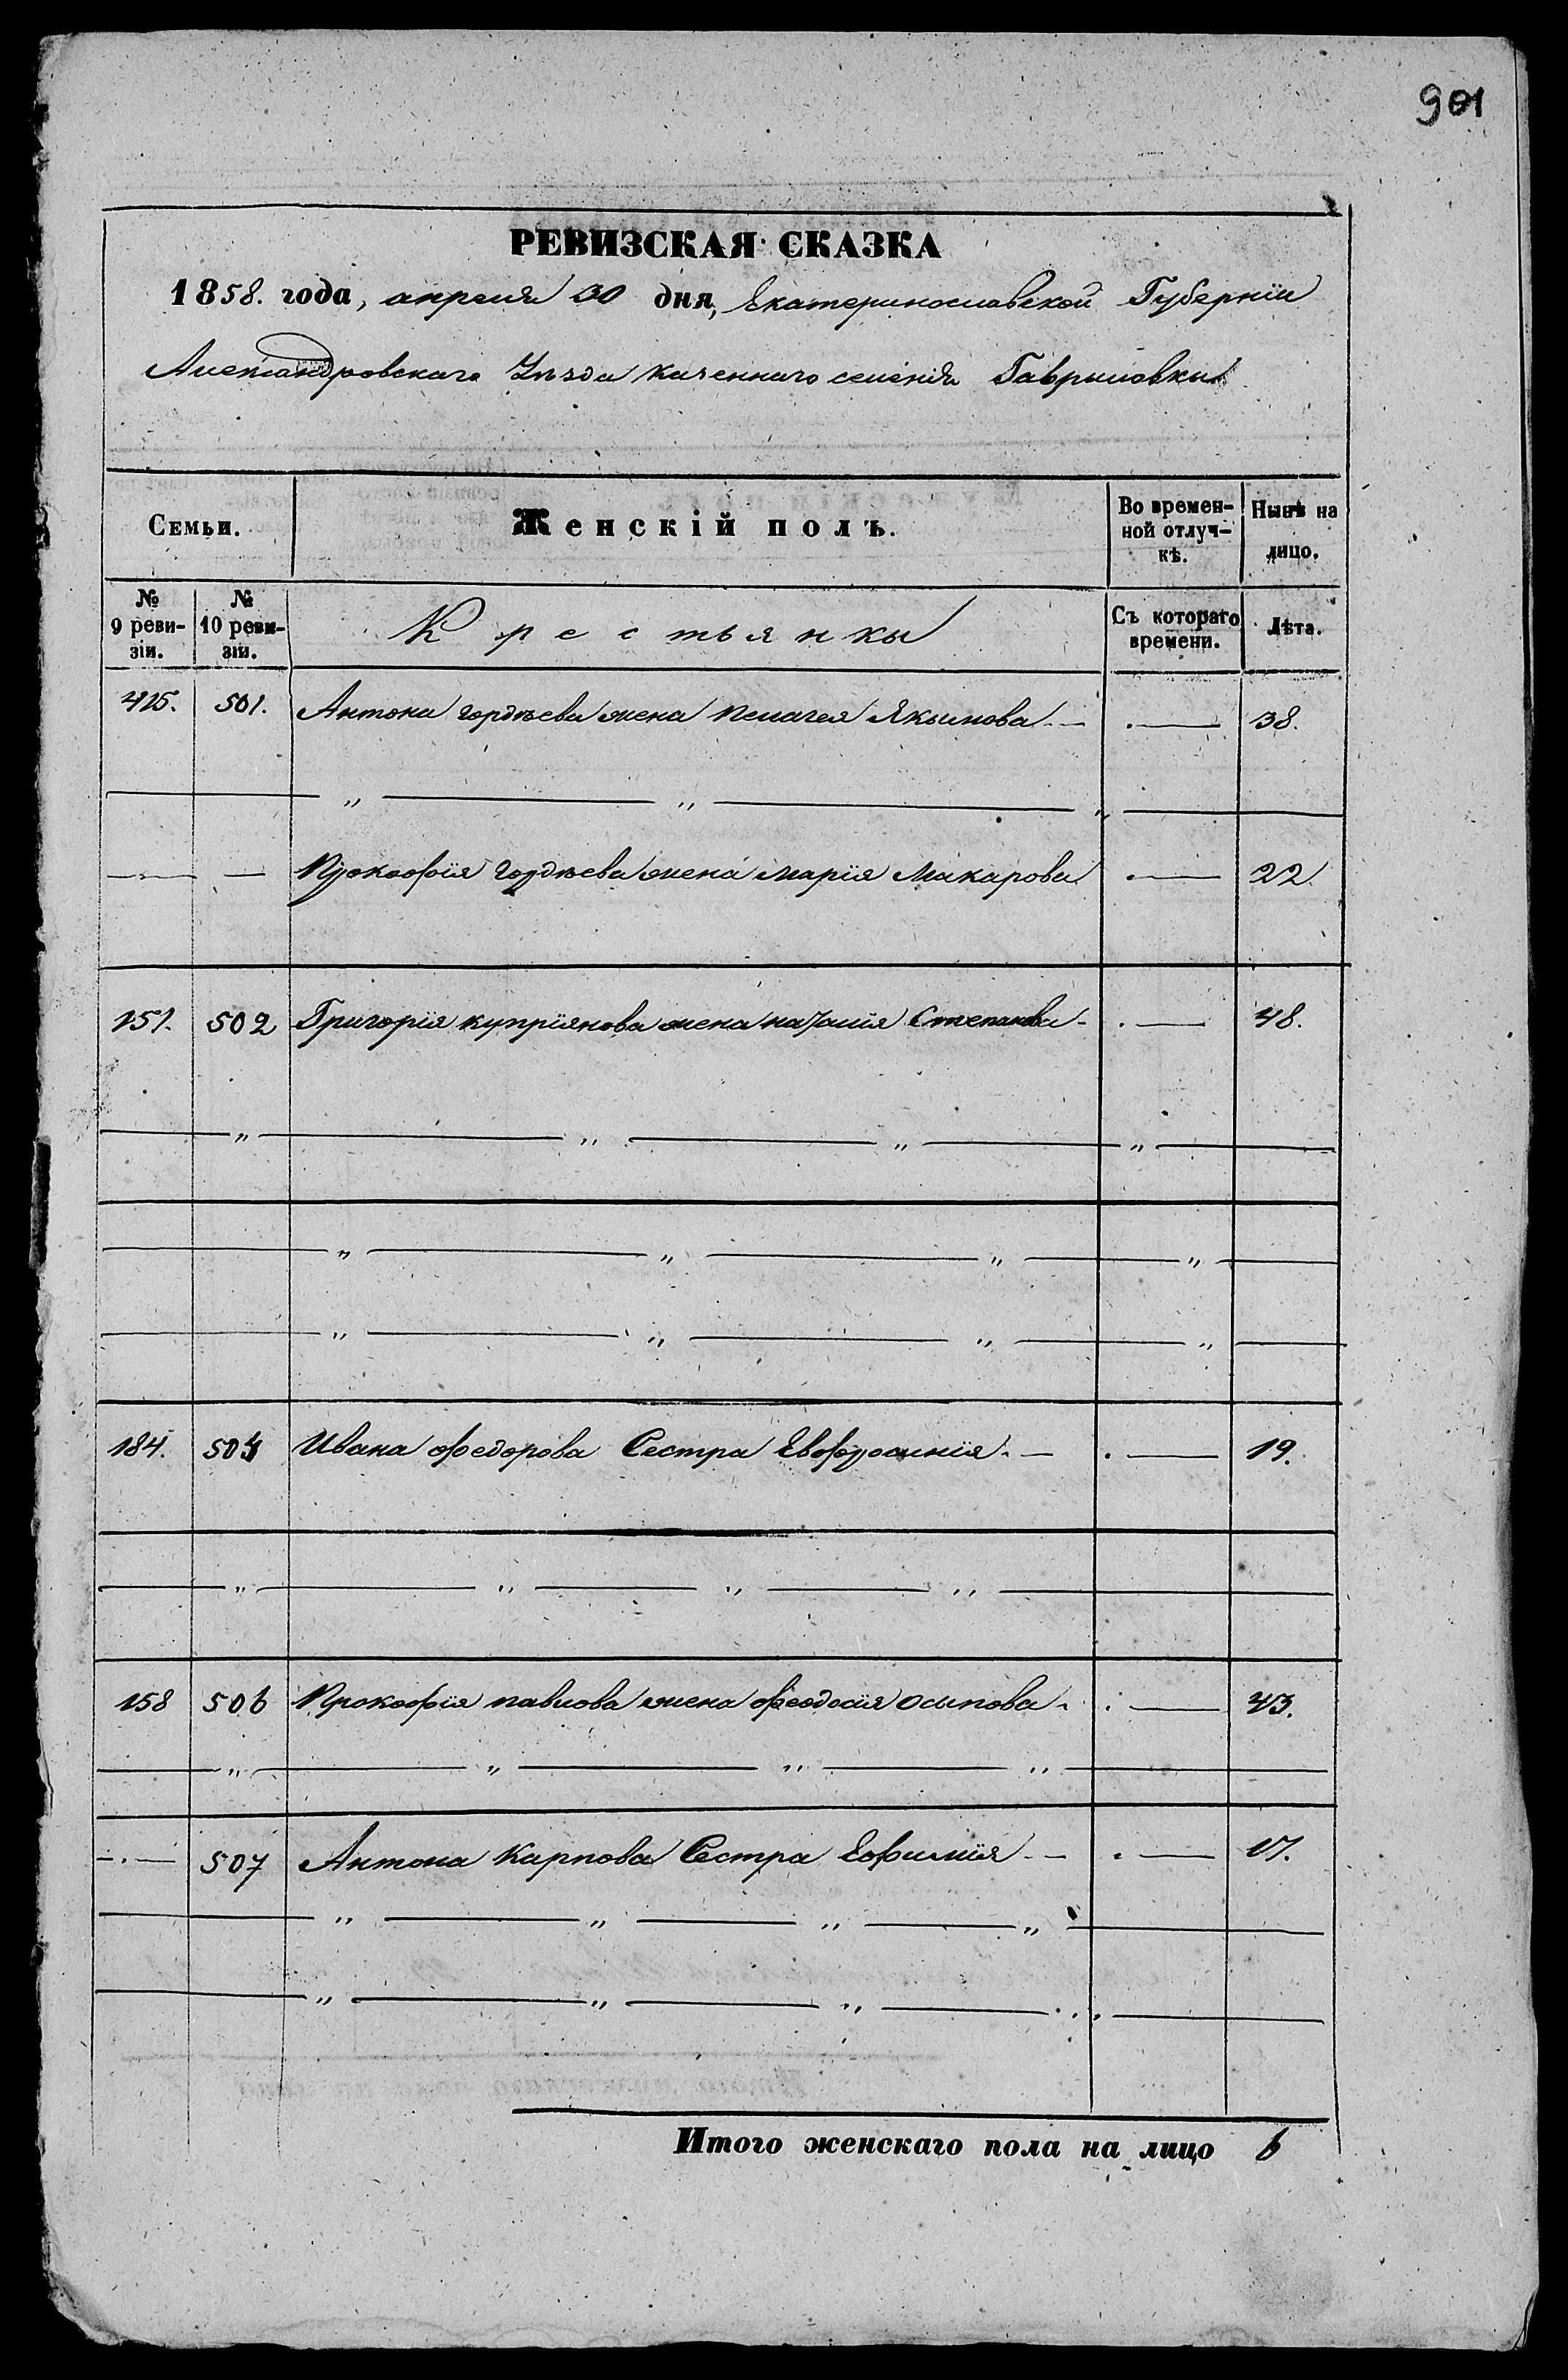 901
РЕВИЗСКАЯ СКАЗКА
1858. года, апреля 30 дня, Екатеринославской Губернїи
Александровскаго Уѣзда казеннаго селенія Гавриловки
Семьи.
Женскій полъ.
Во времен-
ной отлуч-
кѣ.
Нынѣ на
лицо.
№
9 реви-
зіи.
№
10 реви-
зіи.
Крестьянки
Съ котораго
времени.
Лѣта.
415. 501. Антона гордѣева жена пелагея Якимова — . — 38.
— „ — „ — „ —
— . — — Прокофїя гордѣева жена марїя макарова . — 22
151. 502 Григорїя купрїянова жена наталїя Степанова - . — 48.
— „ — „ — „ — „ —
— „ — „ — „ — „ —
— „ — „ — „ — „ —
184. 504 Ивана федорова Сестра Евфросинїя . — . — 19.
— „ — „ — „ — „ —
158 506 Прокофїя павлова жена феодосїя осипова . . — 43.
— „ — „ — „ — „ —
— . — 507 Антона Карпова Сестра Ефимїя — . — 17.
— „ — „ — „ — „ —
— „ — „ — „ — . . . —
Итого женскаго пола на лицо 6